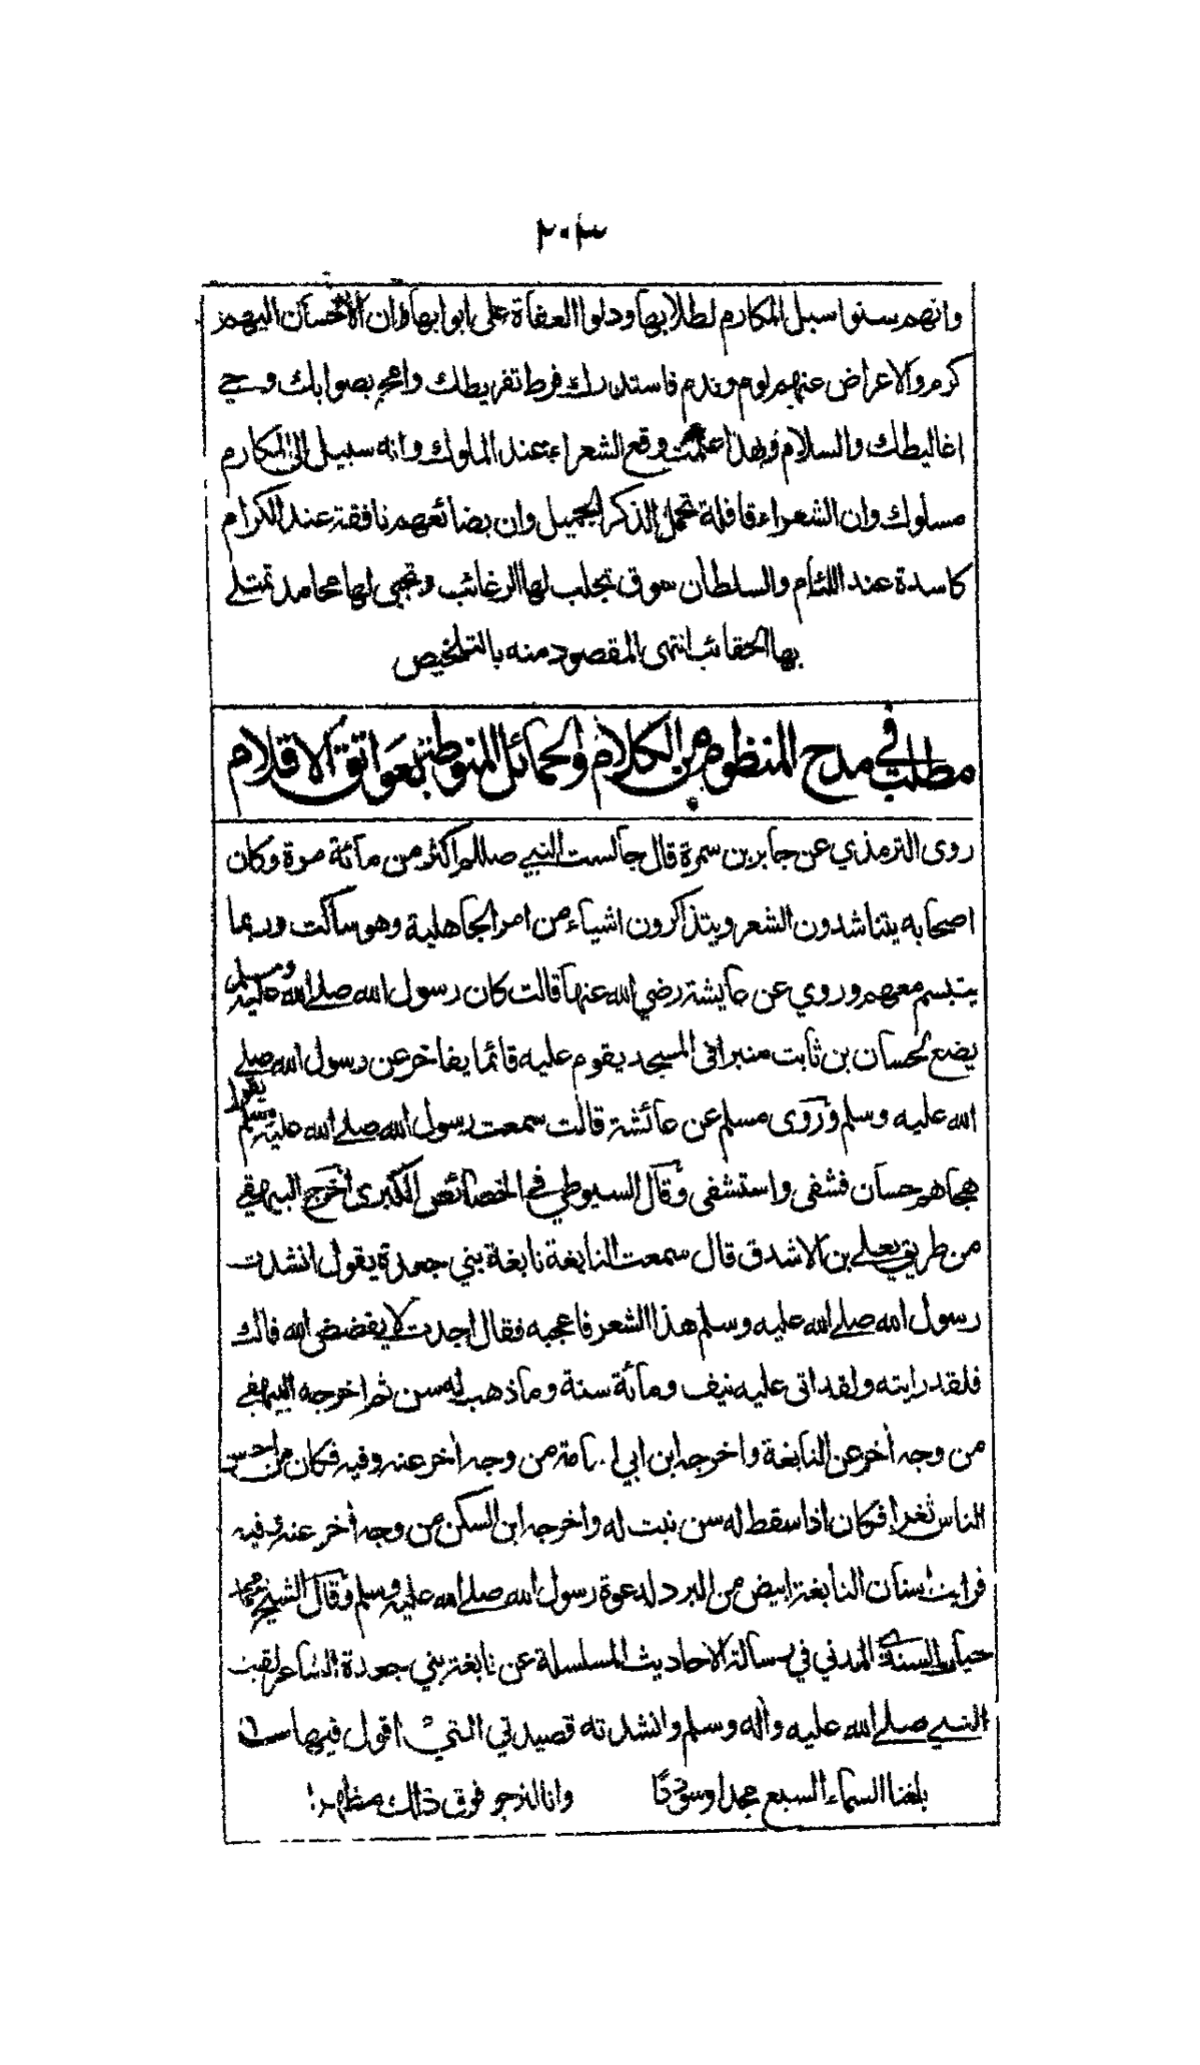 ٢٠٣
وانهم سنوا سبل المكارم لطلابها ودلوا العفاة على ابوابها وان الاحسان اليهم
كرم والاعراض عنهم لوم وندم فاستدرك فرط تفريطك وامح بصوابك وحي
اغاليطك والسلام وبهذا علمت وقع الشعراء عند الملوك وانه سبيل الى المكارم
مسلوك وان الشعراء قافلة تحمل الذكر الجميل وان بضائعهم نافقة عند الكرام
كاسدة عند اللئام والسلطان سوق تجلب لها الرغائب وتجبى لها محامد تمتلي
بها الحقائب انتهى المقصود منه بالتلخيص
مطلب في مدح المنظوم من الكلام والحمائل المنوطة بعواتق الاقلام
روى الترمذي عن جابر بن سمرة قال جالست النبي صللم اكثر من مائة مرة وكان
اصحابه يتناشدون الشعر ويتذاكرون اشياء من امر الجاهلية وهو ساكت وربما
يتبسم معهم وروي عن عايشة رضي الله عنها قالت كان رسول الله صلى الله عليه وسلم
يضع لحسان بن ثابت منبرا في المسجد يقوم عليه قائما يفاخر عن رسول الله صلى
الله عليه وسلم وروى مسلم عن عائشة قالت سمعت رسول الله صلى الله عليه وسلم يقول
هجاهم حسان فشفى واستشفى وقال السيوطي في الخصائص الكبرى اخرج البيهقي
من طريق يعلى بن الاشدق قال سمعت النابغة نابغة بني جعدة يقول انشدت
رسول الله صلى الله عليه وسلم هذا الشعر فاعجبه فقال اجدت لا يفضض الله فاك
فلقد رايته ولقد اتى عليه نيف ومائة سنة وما ذهب له سن ثم اخرجه البيهقي
من وجه أخر عن النابغة واخرجه ابن ابي اسامة من وجه أخر عنه وفيه فكان من احسن
الناس ثغرا فكان اذا سقط له سن نبت له واخرجه ابن السكن من وجه أخر عنه وفيه
فرايت اسنان النابغة ابيض من البرد لدعوة رسول الله صلى الله عليه وسلم وقال الشيخ محمد
حيات السندي المدني في رسالة الاحاديث المسلسلة عن نابغة بني جعدة الشاعر لقيت
النبي صلى الله عليه وأله وسلم وانشدته قصيدتي التي اقول فيها
بلغنا السماء السبع مجدا وسوددًا وانا لنرجو فوق ذلك مظهرا